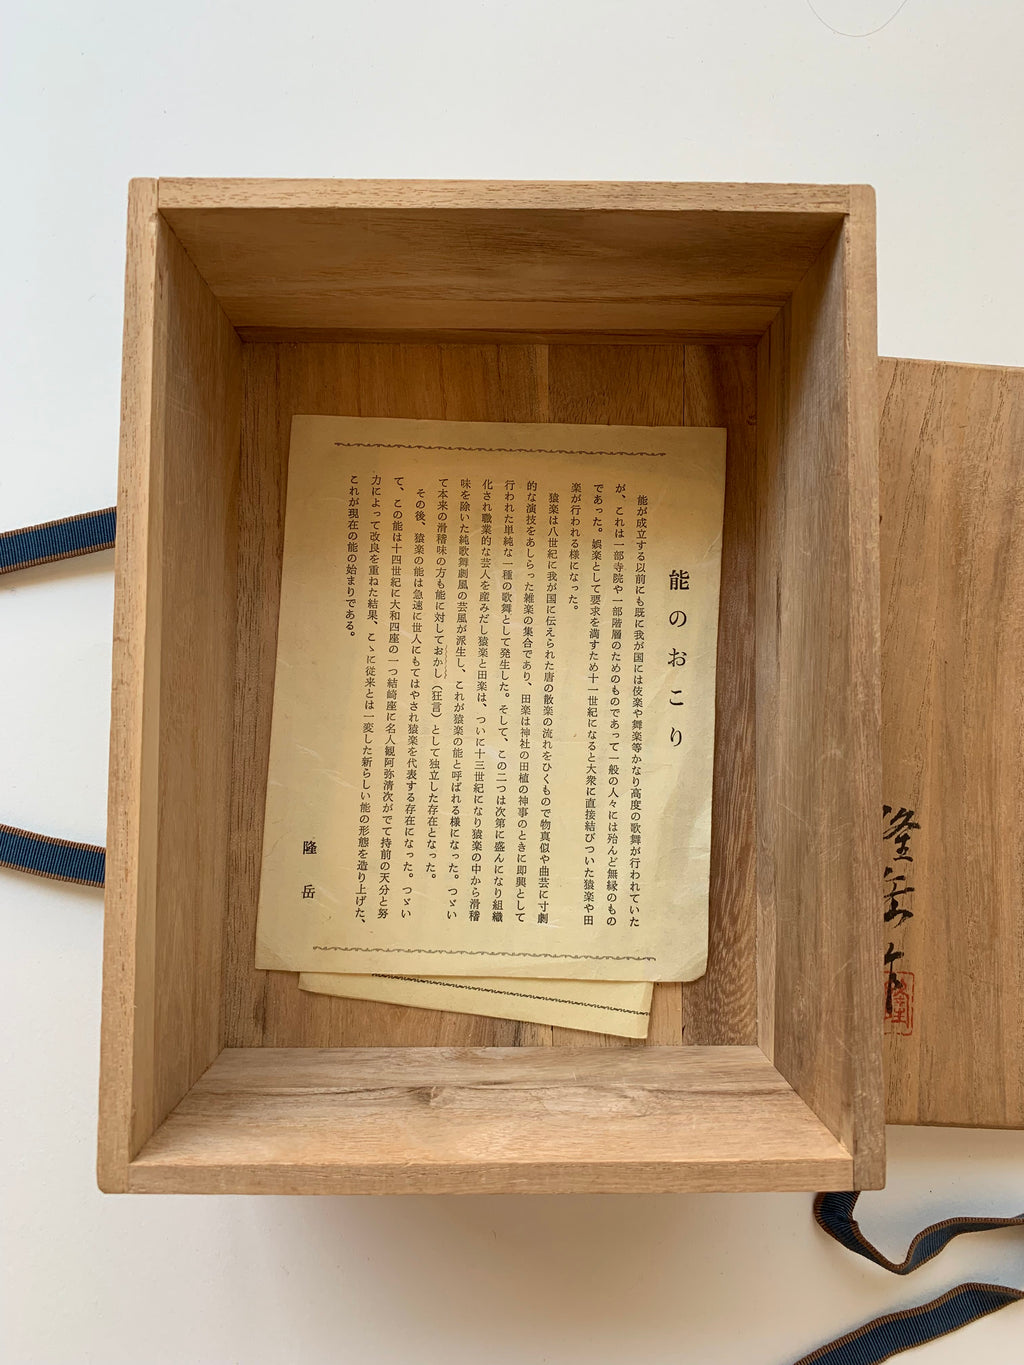 能のおこり
能が成立する以前にも既に我が国には伎楽や舞楽等かなり高度の歌舞が行われていた
が、これは一部寺院や一部階層のためのものであって一般の人々には殆んど無縁のもの
であった。娯楽として要求を満すため十一世紀になると大衆に直接結びついた猿楽や田
楽が行われる様になった。
猿楽は八世紀に我が国に伝えられた唐の散楽の流れをひくもので物真似や曲芸に寸劇
的な演技をあしらった雑楽の集合であり、田楽は神社の田植の神事のときに即興として
行われた単純な一種の歌舞として発生した。そして、この二つは次第に盛んになり組織
化され職業的な芸人を産みだし猿楽と田楽は、ついに十三世紀になり猿楽の中から滑稽
味を除いた純歌舞劇風の芸風が派生し、これが猿楽の能と呼ばれる様になった。つゞい
て本来の滑稽味の方も能に対しておかし（狂言）として独立した存在となった。
その後、猿楽の能は急速に世人にもてはやされ猿楽を代表する存在になった。つゞい
て、この能は十四世紀に大和四座の一つ結崎座に名人観阿弥清次がでて持前の天分と努
力によって改良を重ねた結果、こゝに従来とは一変した新らしい能の形態を造り上げた、
これが現在の能の始まりである。
隆岳
隆岳作
隆